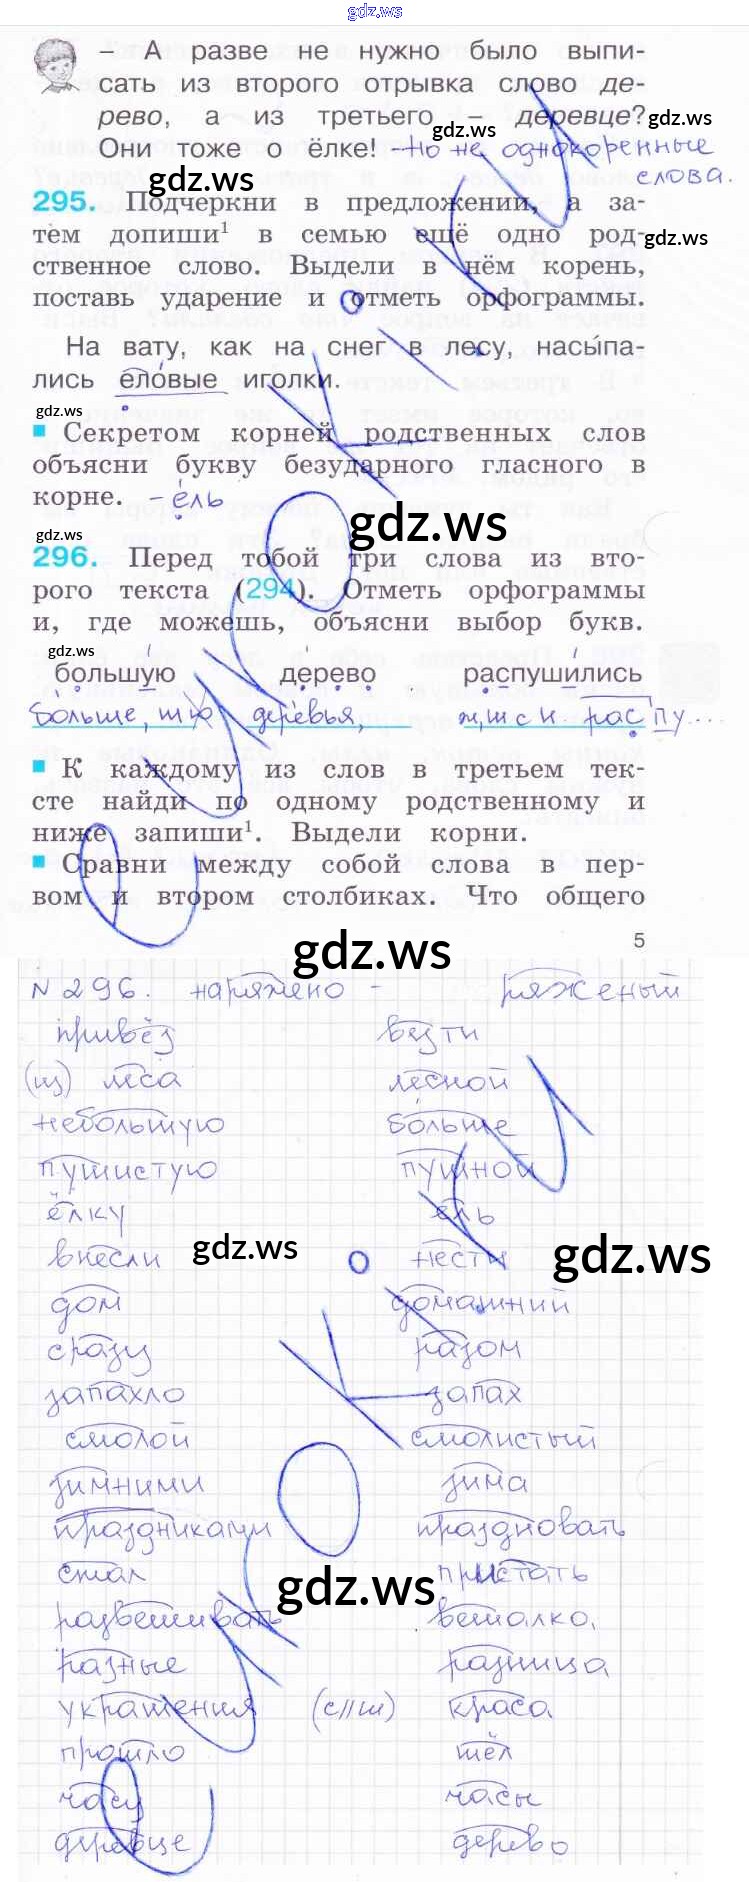 gdz.ws
– А разве не нужно было выпи-
сать из второго отрывка слово де-
рево, а из третьего – деревце?
gdz.ws gdz.ws
Они тоже о ёлке! – Но не однокоренные
слова.
gdz.ws
295. Подчеркни в предложении, а за-
тем допиши¹ в семью ещё одно род-
gdz.ws
ственное слово. Выдели в нём корень,
поставь ударение и отметь орфограммы.
На вату, как на снег в лесу, насы́па-
лись еловые иголки.
gdz.ws
Секретом корней родственных слов
объясни букву безударного гласного в
корне. – ёль
gdz.ws
gdz.ws
296. Перед тобой три слова из вто-
рого текста (294). Отметь орфограммы
и, где можешь, объясни выбор букв.
gdz.ws
большую дерево распушились
больше, деревья, распу...
К каждому из слов в третьем тек-
сте найди по одному родственному и
ниже запиши¹. Выдели корни.
Сравни между собой слова в пер-
вом и втором столбиках. Что общего
5
gdz.ws
N 296. наряжено – ряженый
привёз везти
(из) леса лесной
небольшую больше
пушистую пушной
ёлку ель
gdz.ws gdz.ws
внесли нести
дом домашний
сразу разом
запахло запах
смолой смолистый
зимними зима
праздниками праздновать
стал пристать
gdz.ws
развешивать вешалка
разные разница
украшения (с//ш) краса
прошло шёл
часу часы
деревце дерево
с.ЦОК.КИ